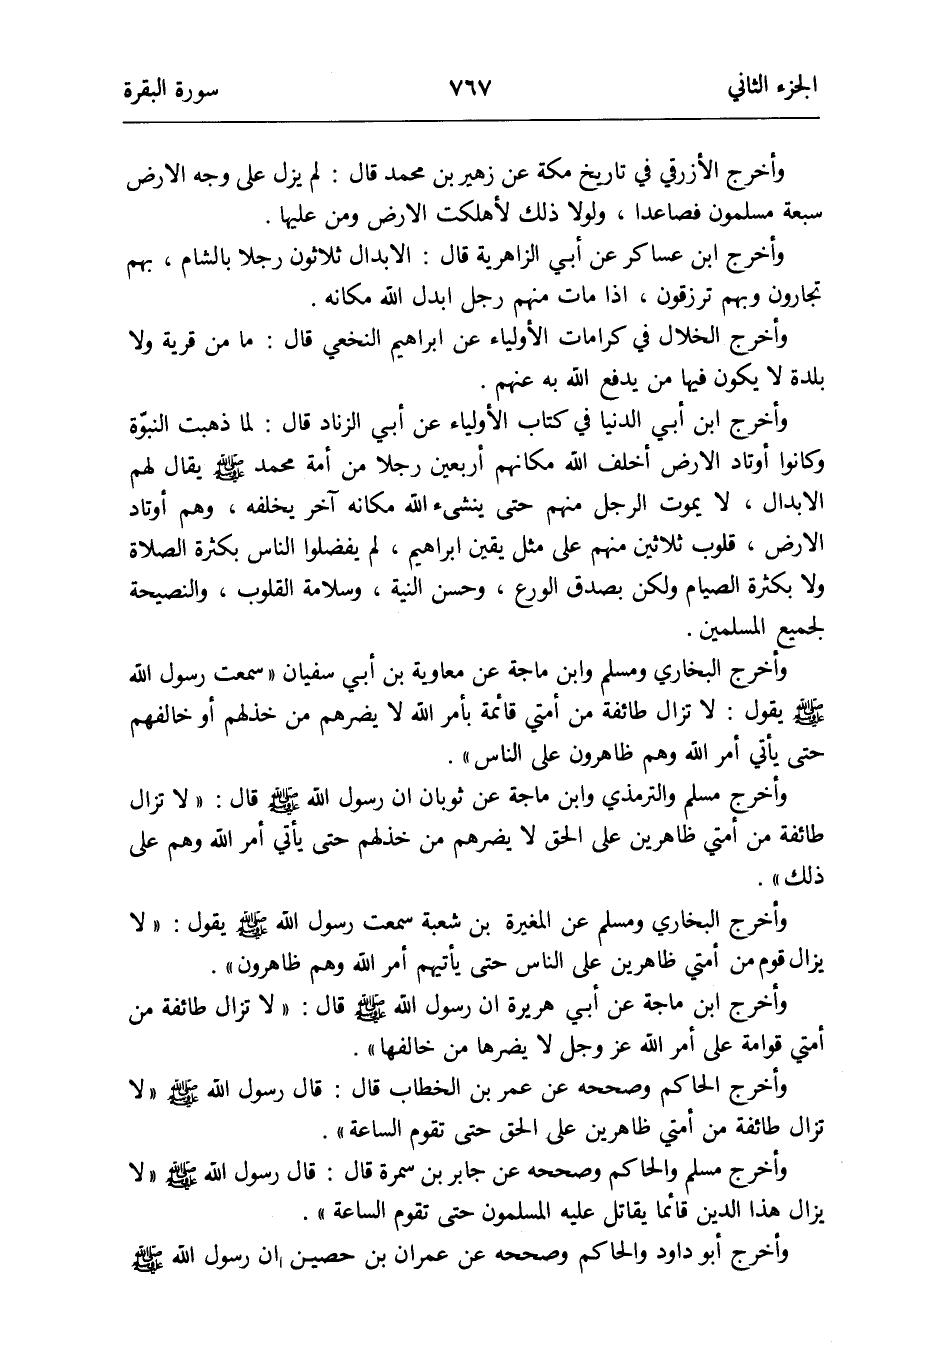 الجزء الثاني ٧٦٧ سورة البقرة
وأخرج الأزرقي في تاريخ مكة عن زهير بن محمد قال : لم يزل على وجه الارض
سبعة مسلمون فصاعدا ، ولولا ذلك لأهلكت الارض ومن عليها .
وأخرج ابن عساكر عن أبي الزاهرية قال : الابدال ثلاثون رجلا بالشام ، بهم
تجارون وبهم ترزقون ، اذا مات منهم رجل ابدل الله مكانه .
وأخرج الخلال في كرامات الأولياء عن ابراهيم النخعي قال : ما من قرية ولا
بلدة لا يكون فيها من يدفع الله به عنهم .
وأخرج ابن أبي الدنيا في كتاب الأولياء عن أبي الزناد قال : لما ذهبت النبوّة
وكانوا أوتاد الارض أخلف الله مكانهم أربعين رجلا من أمة محمد ﷺ يقال لهم
الابدال ، لا يموت الرجل منهم حتى ينشىء الله مكانه آخر يخلفه ، وهم أوتاد
الارض ، قلوب ثلاثين منهم على مثل يقين ابراهيم ، لم يفضلوا الناس بكثرة الصلاة
ولا بكثرة الصيام ولكن بصدق الورع ، وحسن النية ، وسلامة القلوب ، والنصيحة
لجميع المسلمين .
وأخرج البخاري ومسلم وابن ماجة عن معاوية بن أبي سفيان «سمعت رسول الله
ﷺ يقول : لا تزال طائفة من أمتي قائمة بأمر الله لا يضرهم من خذلهم أو خالفهم
حتى يأتي أمر الله وهم ظاهرون على الناس» .
وأخرج مسلم والترمذي وابن ماجة عن ثوبان ان رسول الله ﷺ قال : « لا تزال
طائفة من أمتي ظاهرين على الحق لا يضرهم من خذلهم حتى يأتي أمر الله وهم على
ذلك» .
وأخرج البخاري ومسلم عن المغيرة بن شعبة سمعت رسول الله ﷺ يقول : « لا
يزال قوم من أمتي ظاهرين على الناس حتى يأتيهم أمر الله وهم ظاهرون» .
وأخرج ابن ماجة عن أبي هريرة ان رسول الله ﷺ قال : « لا تزال طائفة من
أمتي قوامة على أمر الله عز وجل لا يضرها من خالفها» .
وأخرج الحاكم وصححه عن عمر بن الخطاب قال : قال رسول الله ﷺ «لا
تزال طائفة من أمتي ظاهرين على الحق حتى تقوم الساعة» .
وأخرج مسلم والحاكم وصححه عن جابر بن سمرة قال : قال رسول الله ﷺ «لا
يزال هذا الدين قائما يقاتل عليه المسلمون حتى تقوم الساعة » .
وأخرج أبو داود والحاكم وصححه عن عمران بن حصين ان رسول الله ﷺ